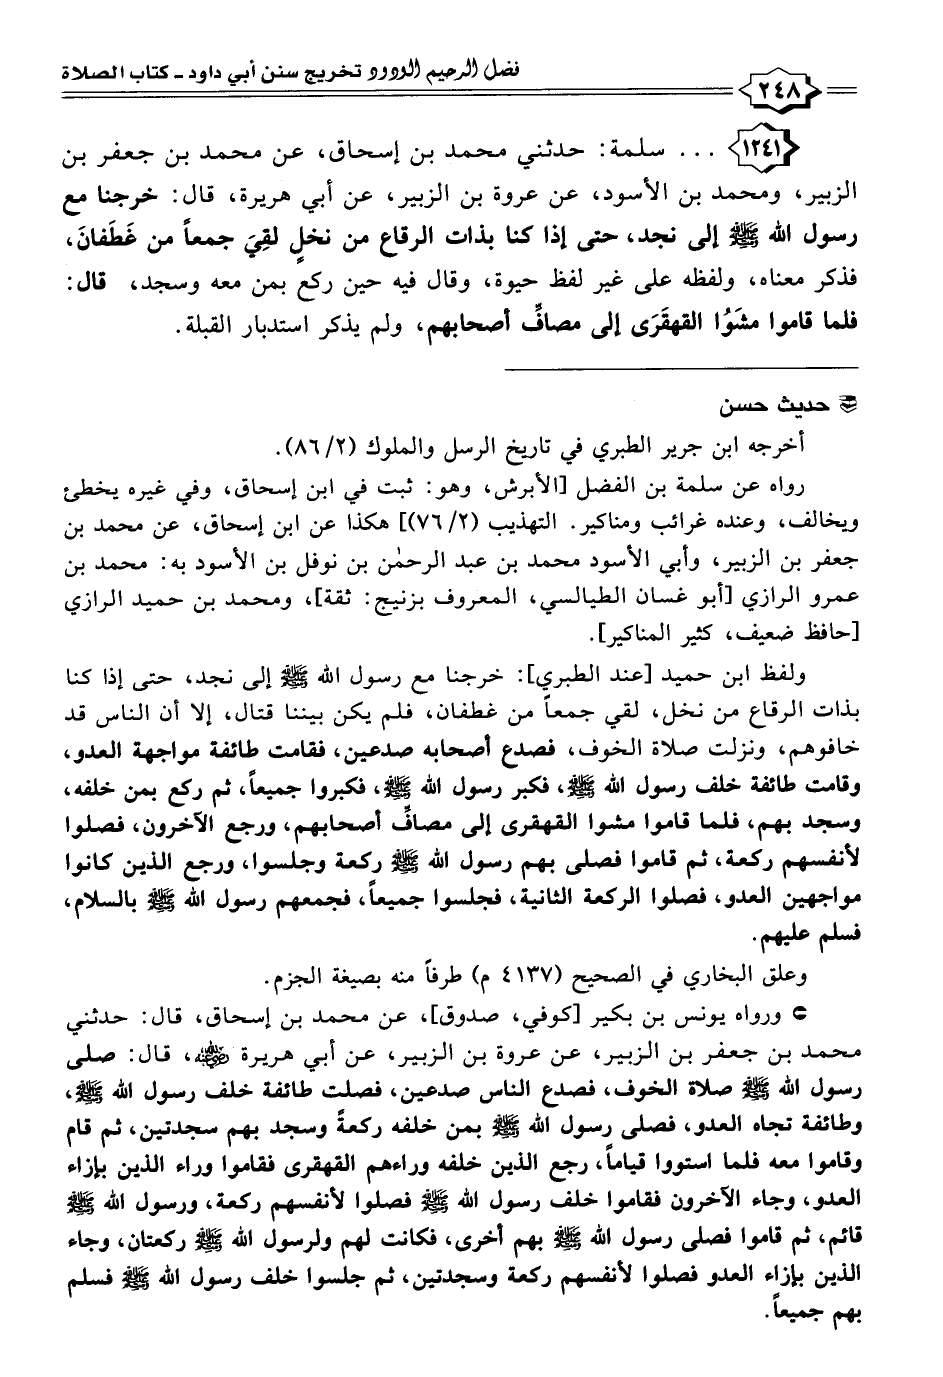 فضل الرحيم الودود تخريج سنن أبي داود - كتاب الصلاة
٢٤٨
١٢٤١ ... سلمة: حدثني محمد بن إسحاق، عن محمد بن جعفر بن
الزبير، ومحمد بن الأسود، عن عروة بن الزبير، عن أبي هريرة، قال: خرجنا مع
رسول الله ﷺ إلى نجد، حتى إذا كنا بذات الرقاع من نخلٍ لقِيَ جمعاً من غَطَفانَ،
فذكر معناه، ولفظه على غير لفظ حيوة، وقال فيه حين ركع بمن معه وسجد، قال:
فلما قاموا مشَوُا القهقَرَى إلى مصافِّ أصحابهم، ولم يذكر استدبار القبلة.
حديث حسن
أخرجه ابن جرير الطبري في تاريخ الرسل والملوك (٨٦/٢).
رواه عن سلمة بن الفضل [الأبرش، وهو: ثبت في ابن إسحاق، وفي غيره يخطئ
ويخالف، وعنده غرائب ومناكير. التهذيب (٧٦/٢)] هكذا عن ابن إسحاق، عن محمد بن
جعفر بن الزبير، وأبي الأسود محمد بن عبد الرحمٰن بن نوفل بن الأسود به: محمد بن
عمرو الرازي [أبو غسان الطيالسي، المعروف بزنيج: ثقة]، ومحمد بن حميد الرازي
[حافظ ضعيف، كثير المناكير].
ولفظ ابن حميد [عند الطبري]: خرجنا مع رسول الله ﷺ إلى نجد، حتى إذا كنا
بذات الرقاع من نخل، لقي جمعاً من غطفان، فلم يكن بيننا قتال، إلا أن الناس قد
خافوهم، ونزلت صلاة الخوف، فصدع أصحابه صدعين، فقامت طائفة مواجهة العدو،
وقامت طائفة خلف رسول الله ﷺ، فكبر رسول الله ﷺ، فكبروا جميعاً، ثم ركع بمن خلفه،
وسجد بهم، فلما قاموا مشوا القهقرى إلى مصافِّ أصحابهم، ورجع الآخرون، فصلوا
لأنفسهم ركعة، ثم قاموا فصلى بهم رسول الله ﷺ ركعة وجلسوا، ورجع الذين كانوا
مواجهين العدو، فصلوا الركعة الثانية، فجلسوا جميعاً، فجمعهم رسول الله ﷺ بالسلام،
فسلم عليهم.
وعلق البخاري في الصحيح (٤١٣٧ م) طرفاً منه بصيغة الجزم.
ورواه يونس بن بكير [كوفي، صدوق]، عن محمد بن إسحاق، قال: حدثني
محمد بن جعفر بن الزبير، عن عروة بن الزبير، عن أبي هريرة رضي الله عنه، قال: صلى
رسول الله ﷺ صلاة الخوف، فصدع الناس صدعين، فصلت طائفة خلف رسول الله ﷺ،
وطائفة تجاه العدو، فصلى رسول الله ﷺ بمن خلفه ركعةً وسجد بهم سجدتين، ثم قام
وقاموا معه فلما استووا قياماً، رجع الذين خلفه وراءهم القهقرى فقاموا وراء الذين بإزاء
العدو، وجاء الآخرون فقاموا خلف رسول الله ﷺ فصلوا لأنفسهم ركعة، ورسول الله ﷺ
قائم، ثم قاموا فصلى رسول الله ﷺ بهم أخرى، فكانت لهم ولرسول الله ﷺ ركعتان، وجاء
الذين بإزاء العدو فصلوا لأنفسهم ركعة وسجدتين، ثم جلسوا خلف رسول الله ﷺ فسلم
بهم جميعاً.